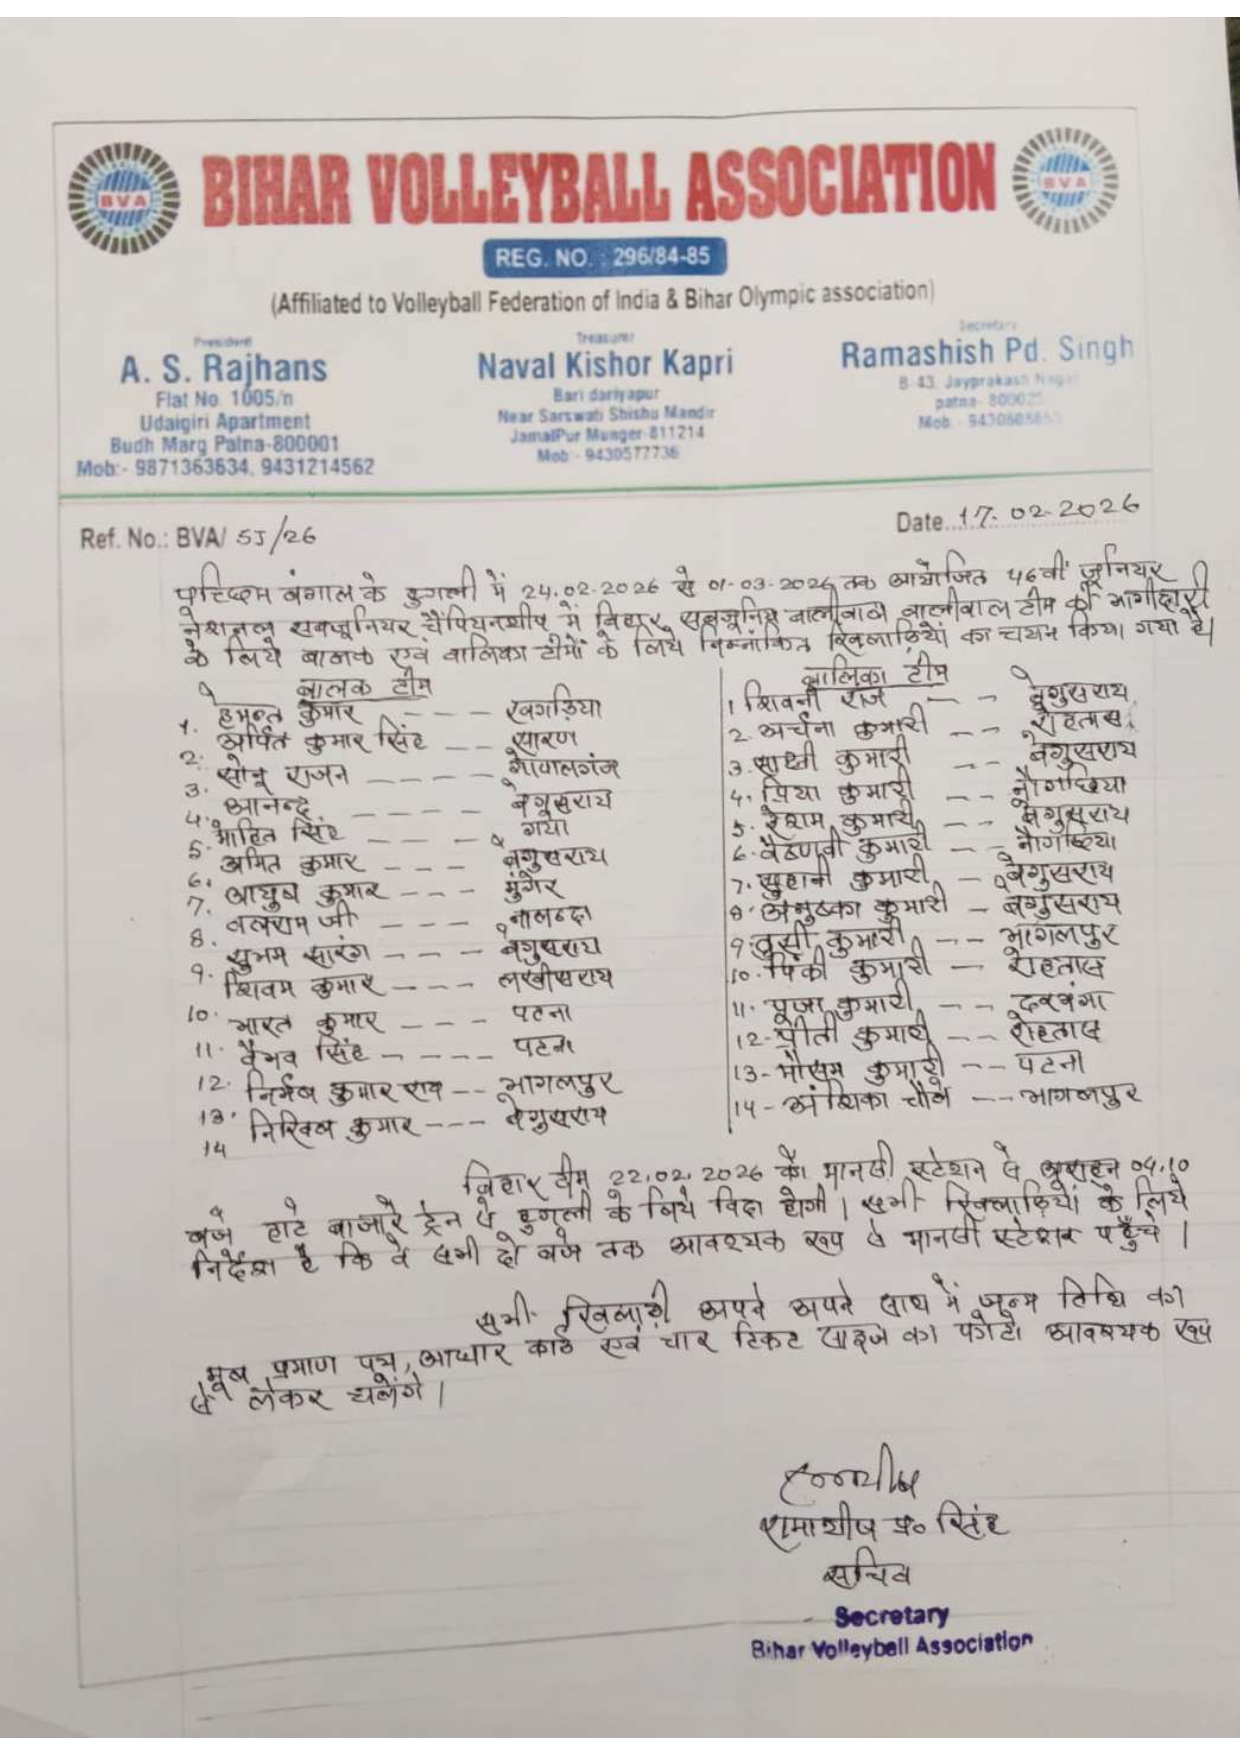 BIHAR VOLLEYBALL ASSOCIATION
BVA
BVA
REG. NO. : 296/84-85
(Affiliated to Volleyball Federation of India & Bihar Olympic association)
President
A. S. Rajhans
Flat No. 1005/n
Udaigiri Apartment
Budh Marg Patna-800001
Mob:- 9871363634, 9431214562
Treasurer
Naval Kishor Kapri
Bari dariyapur
Near Sarswati Shishu Mandir
JamalPur Munger-811214
Mob - 9430577736
Secretary
Ramashish Pd. Singh
B-43, Jayprakash Nagar
patna-
Mob.-
Ref. No.: BVA/ 5J/26
Date 17.02.2026
पश्चिम बंगाल के हुगली में 24.02.2026 से 01-03-2026 तक आयोजित 46वीं जूनियर
नेशनल सबजूनियर चैंपियनशीप में बिहार सबजूनियर वालीबाल टीम की भागीदारी
के लिये बालक एवं बालिका टीमों के लिये निम्नांकित खिलाड़ियों का चयन किया गया है।
बालक टीम
1. हेमन्त कुमार --- खगड़िया
2. अर्पित कुमार सिंह -- सारण
3. सोनू राजन ---- गोपालगंज
4. आनन्द ---- बेगुसराय
5. मोहित सिंह --- गया
6. अमित कुमार --- बेगुसराय
7. आयुष कुमार --- मुंगेर
8. बलराम जी --- नालन्दा
9. सुभम सारंग --- बेगुसराय
10. शिवम कुमार ---- लखीसराय
11. भारत कुमार --- पटना
12. वैभव सिंह ---- पटना
13. निर्भय कुमार राय -- भागलपुर
14 निखिल कुमार --- बेगुसराय
बालिका टीम
1 शिवनी राज -- बेगुसराय
2. अर्चना कुमारी -- रोहतास
3. साक्षी कुमारी -- बेगुसराय
4. प्रिया कुमारी -- नौगछिया
5. रेशम कुमारी -- बेगुसराय
6. वैष्णवी कुमारी -- नौगछिया
7. सुहानी कुमारी - बेगुसराय
8. अनुष्का कुमारी - बेगुसराय
9. कुमारी -- भागलपुर
10. पिंकी कुमारी -- रोहतास
11. पूजा कुमारी -- दरभंगा
12- प्रीती कुमारी -- रोहतास
13- मौसम कुमारी -- पटना
14- अंशिका चौबे --- भागलपुर
बिहार टीम 22.02.2026 को मानसी स्टेशन से 04.10
बजे हाटे बाजारे ट्रेन से हुगली के लिये विदा होगी। सभी खिलाड़ियों के लिये
निर्देश है कि वे सभी दो बजे तक आवश्यक रूप से मानसी स्टेशन पहुँचे।
सभी खिलाड़ी अपने अपने साथ में जन्म तिथि का
मूल प्रमाण पत्र, आधार कार्ड एवं चार टिकट साइज का फोटो आवश्यक रूप
से लेकर चलेंगे।
रामाशीष प्र० सिंह
सचिव
Secretary
Bihar Volleyball Association